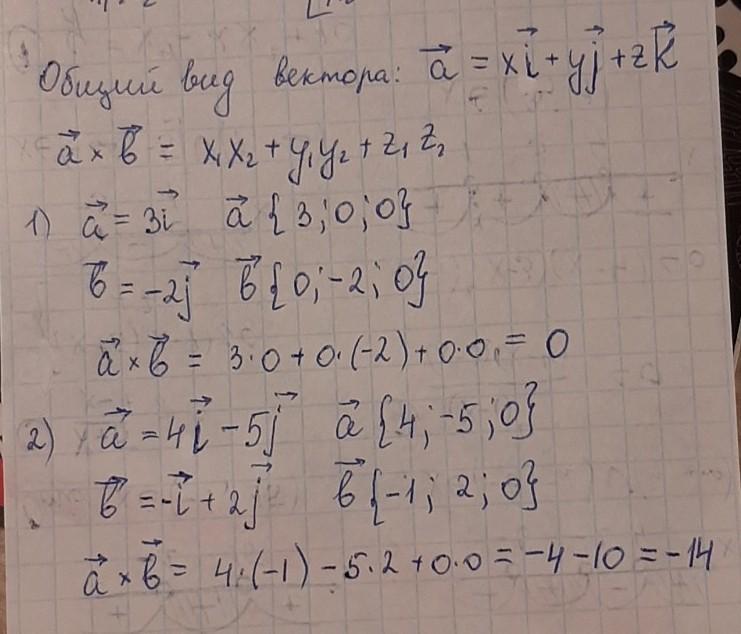 Общий вид вектора: a⃗ = xi⃗ + yj⃗ + zk⃗
a⃗ × b⃗ = x₁x₂ + y₁y₂ + z₁z₂
1) a⃗ = 3i⃗ a⃗ {3; 0; 0}
b⃗ = -2j⃗ b⃗ {0; -2; 0}
a⃗ × b⃗ = 3·0 + 0·(-2) + 0·0 = 0
2) a⃗ = 4i⃗ - 5j⃗ a⃗ {4; -5; 0}
b⃗ = -i⃗ + 2j⃗ b⃗ {-1; 2; 0}
a⃗ × b⃗ = 4·(-1) - 5·2 + 0·0 = -4 - 10 = -14